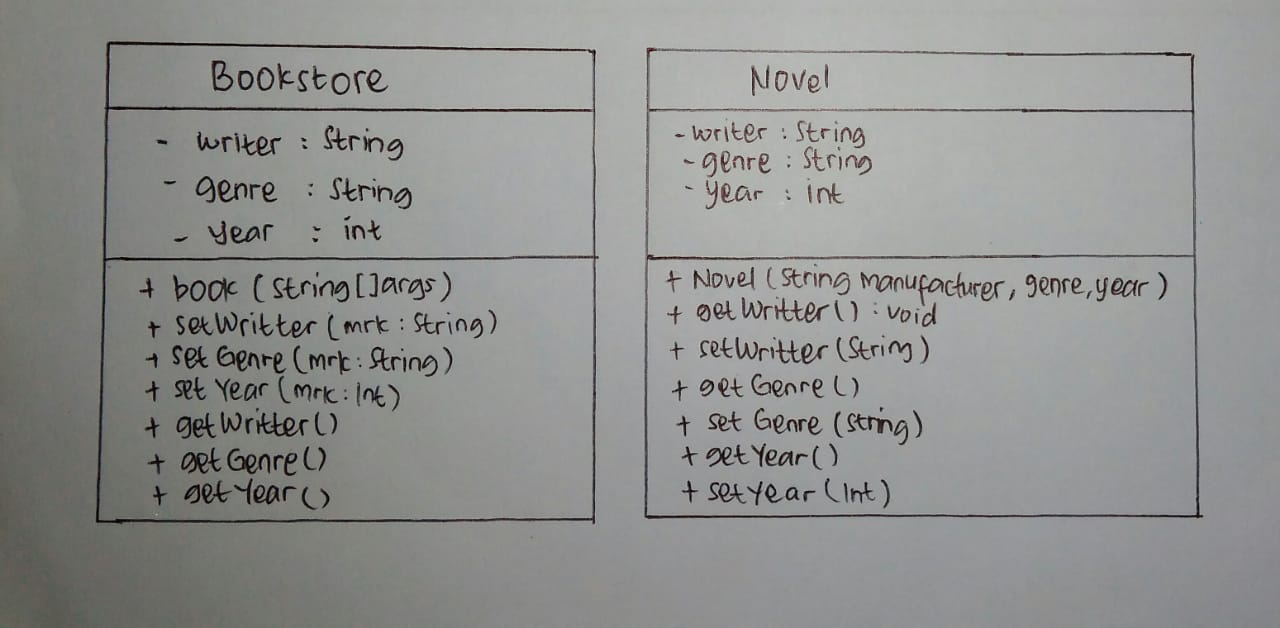 Bookstore
- writer : String
- genre : String
- year : int
+ book (String[]args)
+ setWritter (mrk : String)
+ set Genre (mrk : String)
+ set Year (mrk : Int)
+ getWritter ()
+ getGenre ()
+ getYear ()
Novel
- writer : String
- genre : String
- year : int
+ Novel (String manufacturer, genre, year)
+ getWritter () : void
+ setWritter (String)
+ getGenre ()
+ set Genre (String)
+ getYear ()
+ setYear (Int)